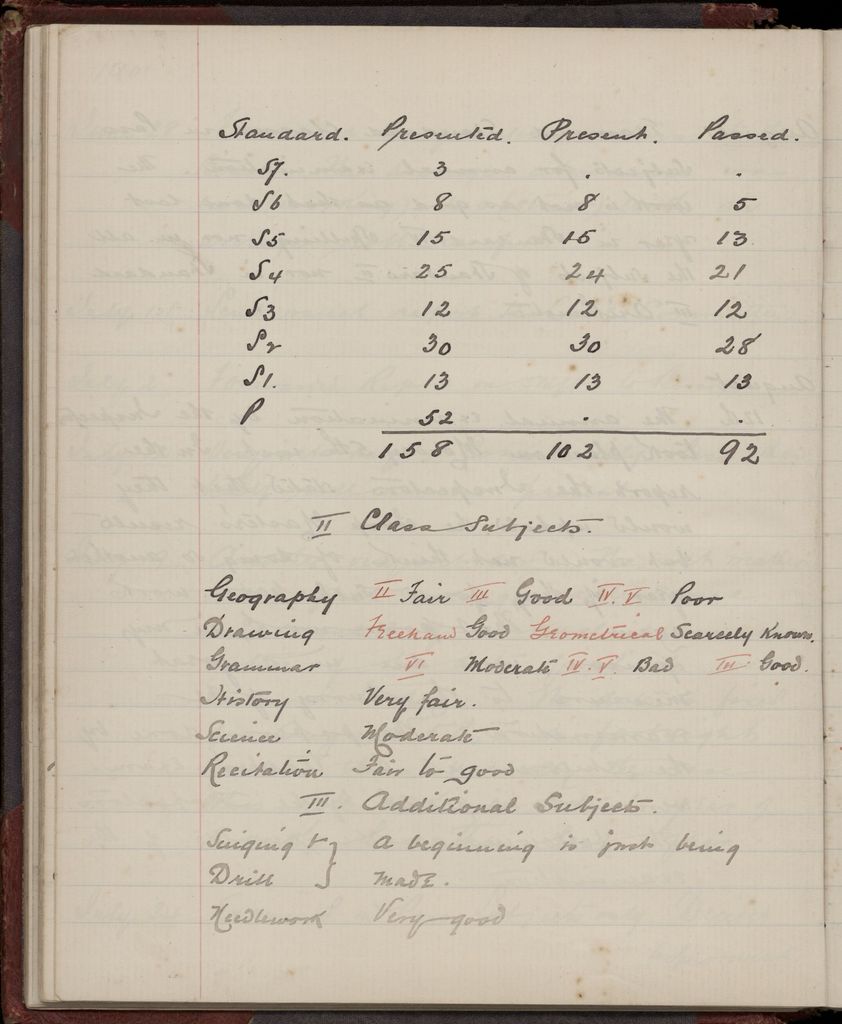 Standard. Presented. Present. Passed.
S7. 3 . .
S6 8 8 5
S5 15 15 13
S4 25 24 21
S3 12 12 12
S2 30 30 28
S1. 13 13 13
P 52 . .
158 102 92
II Class Subjects.
Geography II Fair III Good IV. V Poor
Drawing Freehand Good Geometrical Scarcely Known.
Grammar VI Moderate IV. V. Bad III Good.
History Very fair.
Science Moderate
Recitation Fair to good
III. Additional Subjects.
Singing & } A beginning is just being
Drill } made.
Needlework Very good